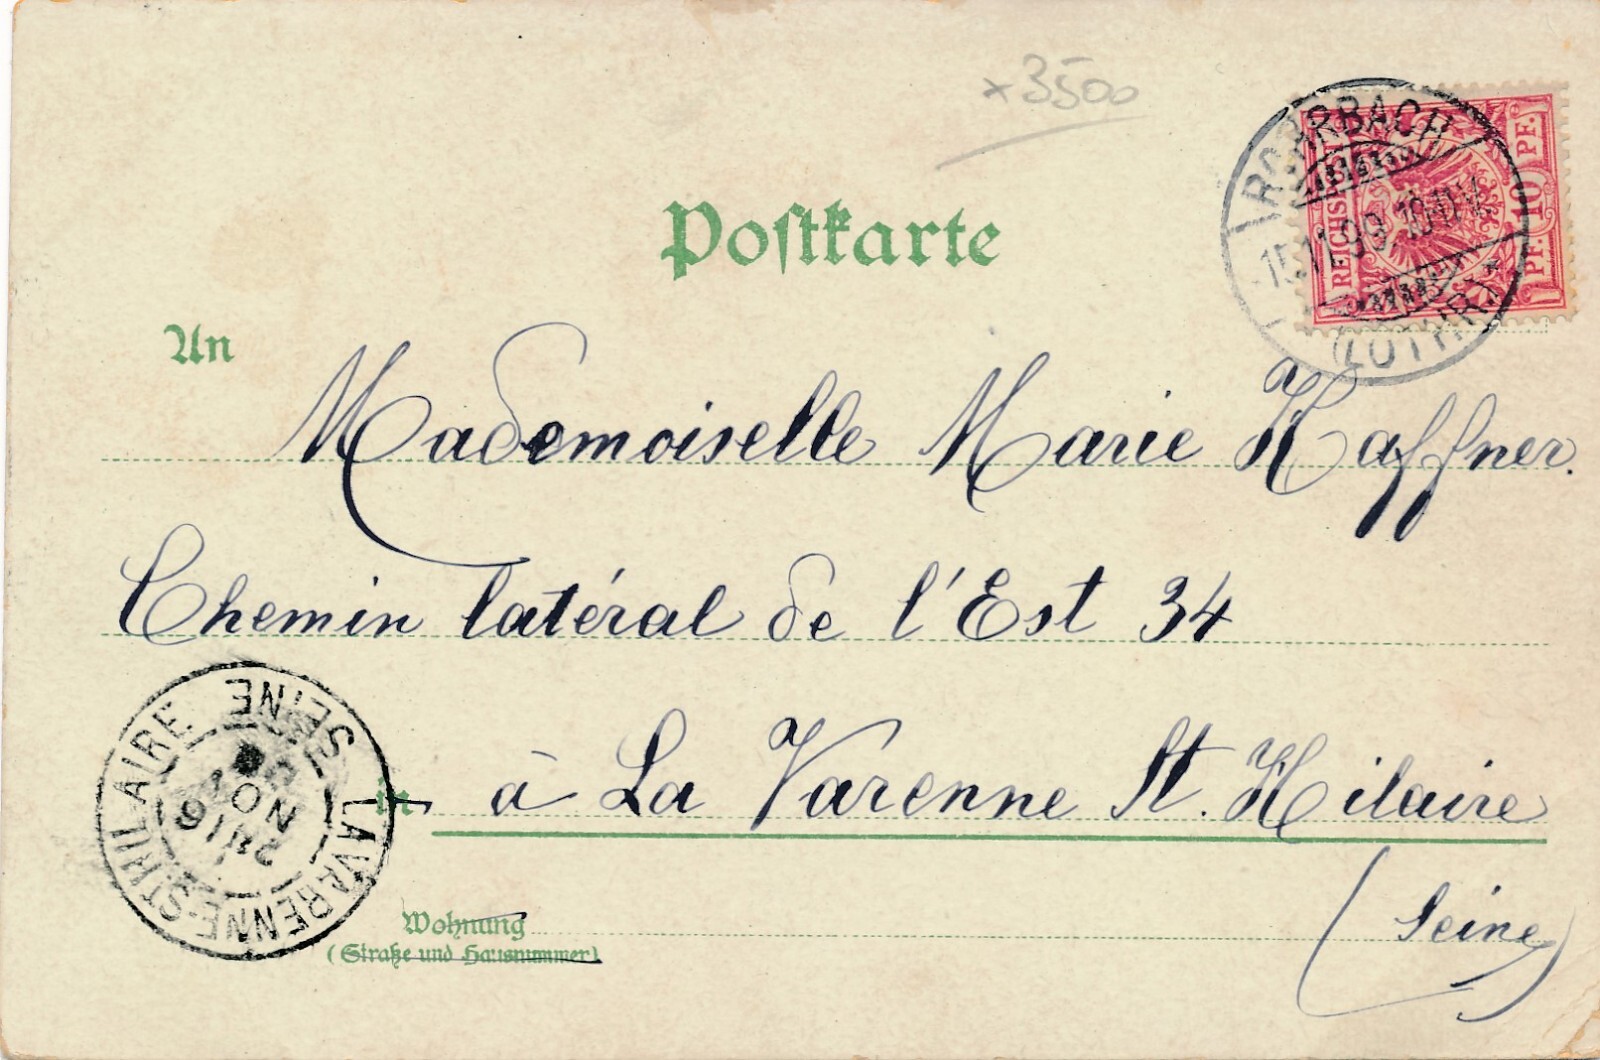 ×3500
Postkarte
REICHSPOST
10 PF. 10 PF.
RORBACH
15.11.99.10-11V.
(LOTHR.)
An
Mademoiselle Marie Haffner.
Chemin latéral de l'Est 34
in à La Varenne St. Hilaire
(Seine)
LA VARENNE-ST-HILAIRE SEINE
16
NOV
Wohnung
(Straße und Hausnummer)